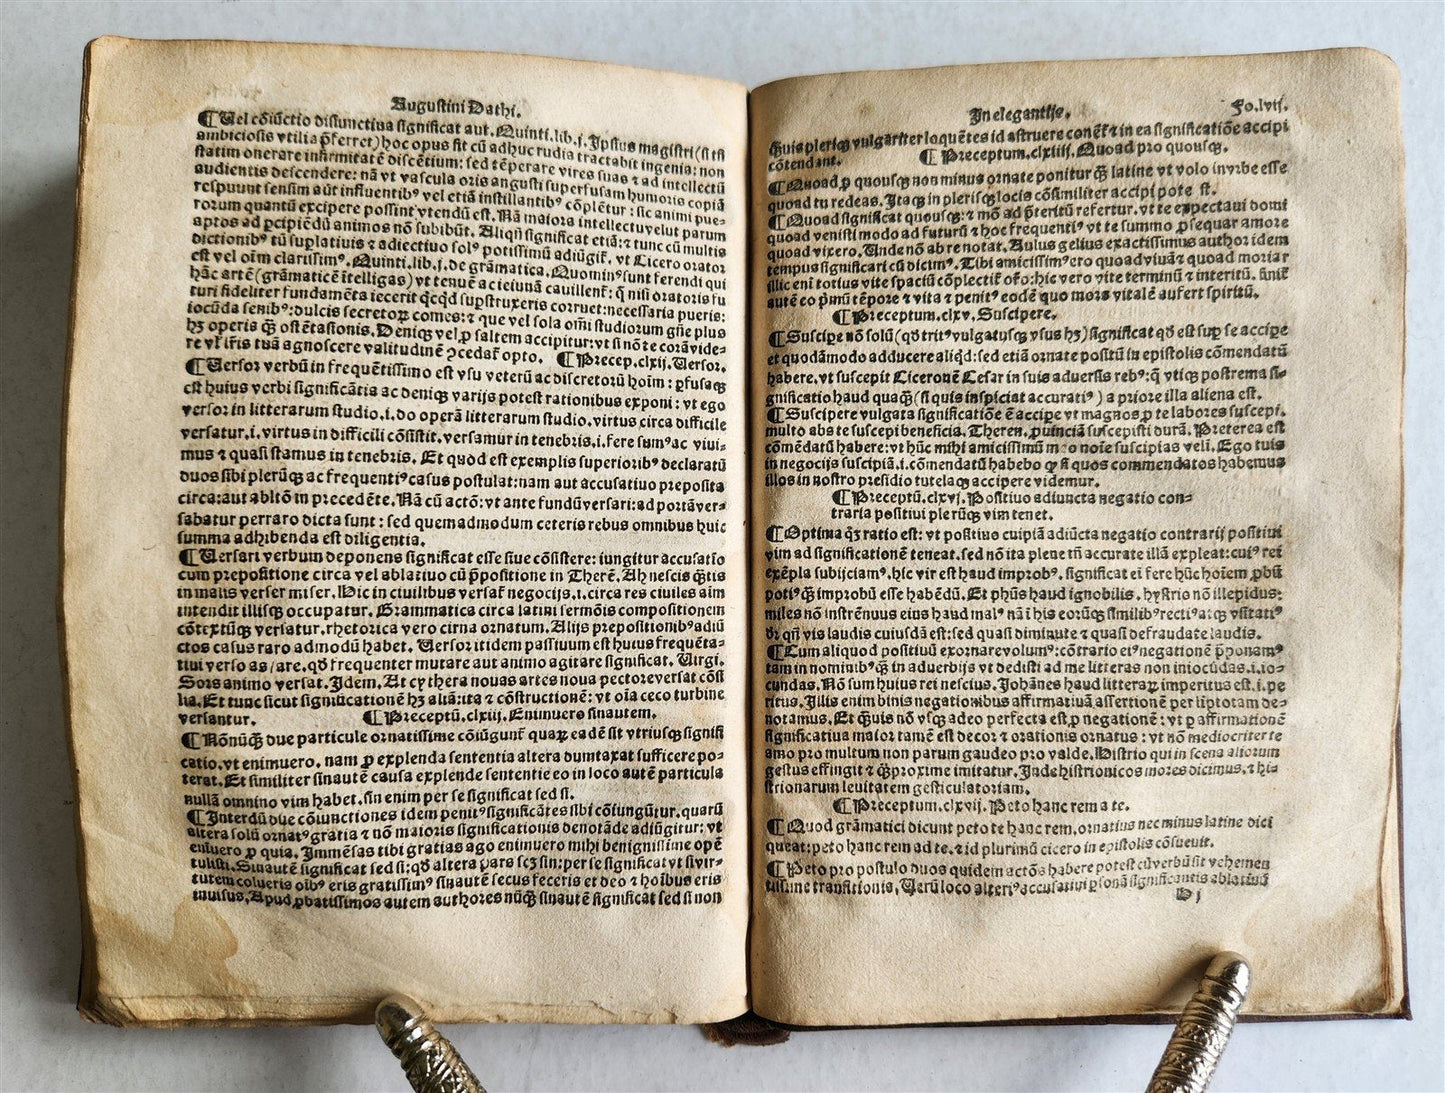 Augustini Dathi.
¶ Uel cōiūctio disiunctiua significat aut. Quinti.lib.j. Ipsius magistri (si tñ
ambiciosis vtilia p̄ferret) hoc opus sit cū adhuc rudia tractabit ingenia: non
statim onerare infirmitatē discētium: sed tēperare vires suas ⁊ ad intellectū
audientis descendere: nā vt vascula oris angusti superfusam humoris copiā
respuunt sensim aūt influentibꝰ vel etiā instillantibꝰ cōplētur: sic animi pue⸗
rorum quantū excipere possint vtendū est. Nā maiora intellectu velut parum
aptos ad ꝑcipiēdū animos nō subibūt. Aliqñ significat etiā: ⁊ tunc cū multis
dictionibꝰ tū suplatiuis ⁊ adiectiuo solꝰ potissimū adiūgit̄. vt Cicero orator
est vel oīm clarissimꝰ. Quinti.lib.j.de grāmatica. Quominꝰ sunt ferendi qui
hāc artē (grāmaticē ītelligas) vt tenuē ac ieiunā cauillent̄: q̄ nisi oratoris fu
turi fideliter fundamēta iecerit q̇cqd supstruxeris corruet: necessaria pueris:
iocūda senibꝰ: dulcis secretoꝝ comes: ⁊ que vel sola oīm studiorum gñe plus
hꝫ operis q̄ꝫ ostētasionis. Deniqꝫ vel ꝓ saltem accipitur: vt si nō te corā vide⸗
re vl̄ lr̄is tuā agnoscere valitudinē ↄcedat̄ opto. ¶ Precep.clxij. Uersor.
¶ Uersor verbū in frequētissimo est vsu veterū ac discretorū hoīm: ꝑfusaqꝫ
est huius verbi significātia ac deniqꝫ varijs potest rationibus exponi: vt ego
versor in litterarum studio.i.do operā litterarum studio. virtus circa difficile
versatur.i.virtus in difficili cōsistit. versamur in tenebris.i.fere sumꝰ ac viui⸗
mus ⁊ quasi stamus in tenebris. Et quod est exemplis superioribꝰ declaratū
duos sibi plerūqꝫ ac frequentiꝰ casus postulat: nam aut accusatiuo preposita
circa: aut abltō in precedēte. Nā cū actō: vt ante fundū versari: ad portā ver⸗
sabatur perraro dicta sunt: sed quemadmodum ceteris rebus omnibus huic
summa adhibenda est diligentia.
¶ Uersari verbum deponens significat esse siue cōsistere: iungitur accusatio
cum prepositione circa vel ablatiuo cū p̄positione in Therē. Ah nescis q̄ꝫtis
in malis verser miser. Dic in ciuilibus versat̄ negocijs.i.circa res ciuiles aīm
intendit illisqꝫ occupatur. Grammatica circa latini sermōis compositionem
cōtextūqꝫ versatur. rhetorica vero cirna ornatum. Alijs prepositionibꝰ adiū
ctos casus raro admodū habet. Uersor itidem passiuum est huius frequēta⸗
tiui verso as/are. qd̄ frequenter mutare aut animo agitare significat. Uirgi.
Sors animo versat. Idem. At cythera nouas artes noua pectore versat cōsi
lia. Et tunc sicut significationē hꝫ aliā: ita ⁊ cōstructionē: vt oīa ceco turbine
versantur. ¶ Preceptū.clxiij. Enimuero sinautem.
¶ Nōnūq̄ꝫ due particule ornatissime cōiūgunt̄ quaꝝ eadē sit vtriusqꝫ signifi
catio. vt enimuero. nam ꝓ explenda sententia altera dumtaxat sufficere po⸗
terat. Et similiter sinautē causa explende sententie eo in loco autē particula
nullā omnino vim habet. sin enim per se significat sed si.
¶ Interdū due cōiunctiones idem penitꝰ significātes sibi cōiungūtur. quarū
altera solū ornatꝰ gratia ⁊ nō maioris significationis denotāde adiūgitur: vt
enīuero ꝓ quia. Immēsas tibi gratias ago enimuero mihi benignissime opē
tulisti. Sinautē significat sed si: qd̄ altera pars scꝫ sin: per se significat vt si vir⸗
tutem colueris oībꝰ eris gratissimꝰ sinautē secus feceris et deo ⁊ hoībus eris
inuisus. Apud ꝓbatissimos autem authores nūq̄ꝫ sinautē significat sed si non
In elegantijs. Fo.lvij.
quis pleriqꝫ vulgariter loquētes id astruere conēt̄ ⁊ in ea significatiōe accipi
cōtendant. ¶ Preceptum.clxiiij. Quoad pro quousqꝫ.
¶ Quoad ꝓ quousqꝫ non minus ornate ponitur q̄ꝫ latine vt volo in vrbe esse
quoad tu redeas. Itaqꝫ in plerisqꝫ locis cōsimiliter accipi pote st.
¶ Quoad significat quousqꝫ: ⁊ mō ad p̄teritū refertur. vt te expectaui domi
quoad venisti modo ad futurū ⁊ hoc frequentiꝰ vt te summo ꝓsequar amore
quoad vixero. Unde nō ab re notat. Aulus gelius exactissimus author idem
tempus significari cū dicimꝰ. Tibi amicissimꝰ ero quoad viuā ⁊ quoad moriar
illic enī totius vite spaciū cōplectit̄ ofo: hic vero vite terminū ⁊ interitū.
autē eo p̄mū tēpore ⁊ vita ⁊ penitꝰ eodē quo mors vitalē aufert spiritū.
¶ Preceptum.clxv. Suscipere.
¶ Suscipe nō solū (qd̄ tritꝰ vulgatusqꝫ vsus hꝫ) significat qd̄ est sup se accipe
et quodāmodo adducere aliqd: sed etiā ornate positū in epistolis cōmendatū
habere. vt suscepit Ciceronē Cesar in suis aduersis rebꝰ: q̄ vtiqꝫ postrema si⸗
gnificatio haud quaq̄ꝫ (si quis inspiciat accuratiꝰ) a priore illa aliena est.
¶ Suscipere vulgata significatiōe ē accipe vt magnos ꝓ te labores suscepi.
multo abs te suscepi beneficia. Theren. ꝓuinciā suscepisti durā. Preterea est
cōmēdatū habere: vt hūc mihi amicissimū meo noīe suscipias veli. Ego tuis
in negocijs suscipiā.i.cōmendatū habebo ꝙ si quos commendatos habemus
illos in nostro presidio tutelaqꝫ accipere videmur.
¶ Preceptū.clxvj. Positiuo adiuncta negatio con⸗
traria positiui plerūqꝫ vim tenet.
¶ Optima q̄ꝫ ratio est: vt positiuo cuipiā adiūcta negatio contrarij positiui
vim ad significationē teneat. sed nō ita plene tñ accurate illā expleat: cuiꝰ rei
exēpla subijciamꝰ. hic vir est haud improbꝰ. significat eī fere hūc hoīem ꝓbū
potiꝰ q̄ꝫ improbū esse habēdū. Et phūs haud ignobilis. hystrio nō illepidus:
miles nō instrēnuus eius haud malꝰ nā ī his eorūqꝫ similibꝰ rectiꝰ atqꝫ vsitatiꝰ
dr̄ qñ vis laudis cuiusdā est: sed quasi diminute ⁊ quasi defraudate laudis.
¶ Cum aliquod positiuū exornare volumꝰ: cōtrario eiꝰ negationē p̄ponamꝰ
tam in nominibꝰ q̄ꝫ in aduerbijs vt dedisti ad me litteras non iniocūdas.i.io⸗
cundas. Nō sum huius rei nescius. Johānes haud litteraꝝ imperitus est.i.pe
ritus. Illis enim binis negationibus affirmatiuā assertionē per liptotam de⸗
notamus. Et q̄ꝫuis nō vsqꝫ adeo perfecta est ꝑ negationē: vt ꝑ affirmationē
significatiua maior tamē est decor ⁊ orationis ornatus: vt nō mediocriter te
amo pro multum non parum gaudeo pro valde. Histrio qui in scena aliorum
gestus effingit ⁊ q̄ꝫproxime imitatur. Inde histrionicos mores dicimus. ⁊ hi⸗
strionarum leuitatem gesticulatoriam.
¶ Preceptum.clxvij. Peto hanc rem a te.
¶ Quod grāmatici dicunt peto te hanc rem, ornatius nec minus latine dici
queat: peto hanc rem ad te. ⁊ id plurimū cicero in epistolis cōsueuit.
¶ Peto pro postulo duos quidem actōs habere potest cū verbū sit vehemen
tissime transitionis. Uerū loco alteriꝰ accusatiui ꝑsonā significantis ablatiuū
D j